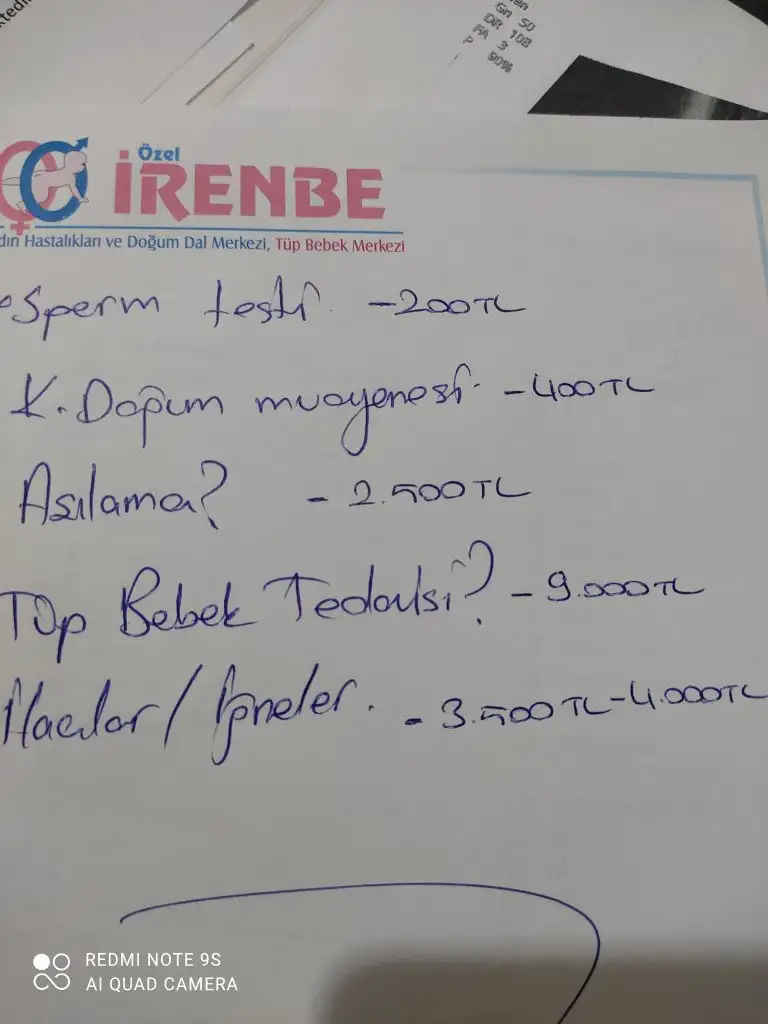 Gn 50
DR 108
FA 3
P 90%
Özel
İRENBE
dın Hastalıkları ve Doğum Dal Merkezi, Tüp Bebek Merkezi
Sperm testi. -200TL
K. Doğum muayenesi. -400TL
Aşılama? - 2.500TL
Tüp Bebek Tedavisi? - 9.000TL
İlaçlar / İğneler. - 3.500TL-4.000TL
REDMI NOTE 9S
AI QUAD CAMERA